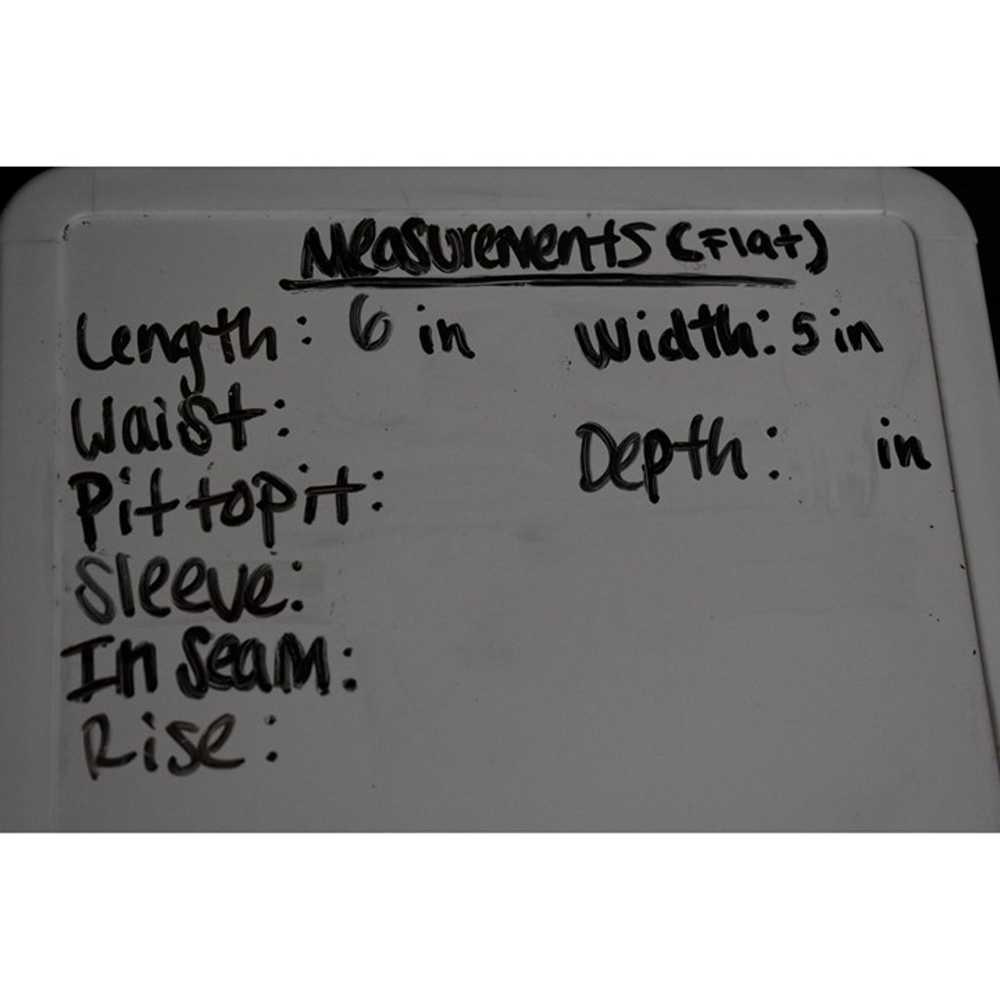 Measurements (Flat)
Length: 6 in
Width: 5 in
Waist:
Depth: in
Pit to pit:
Sleeve:
In Seam:
Rise: